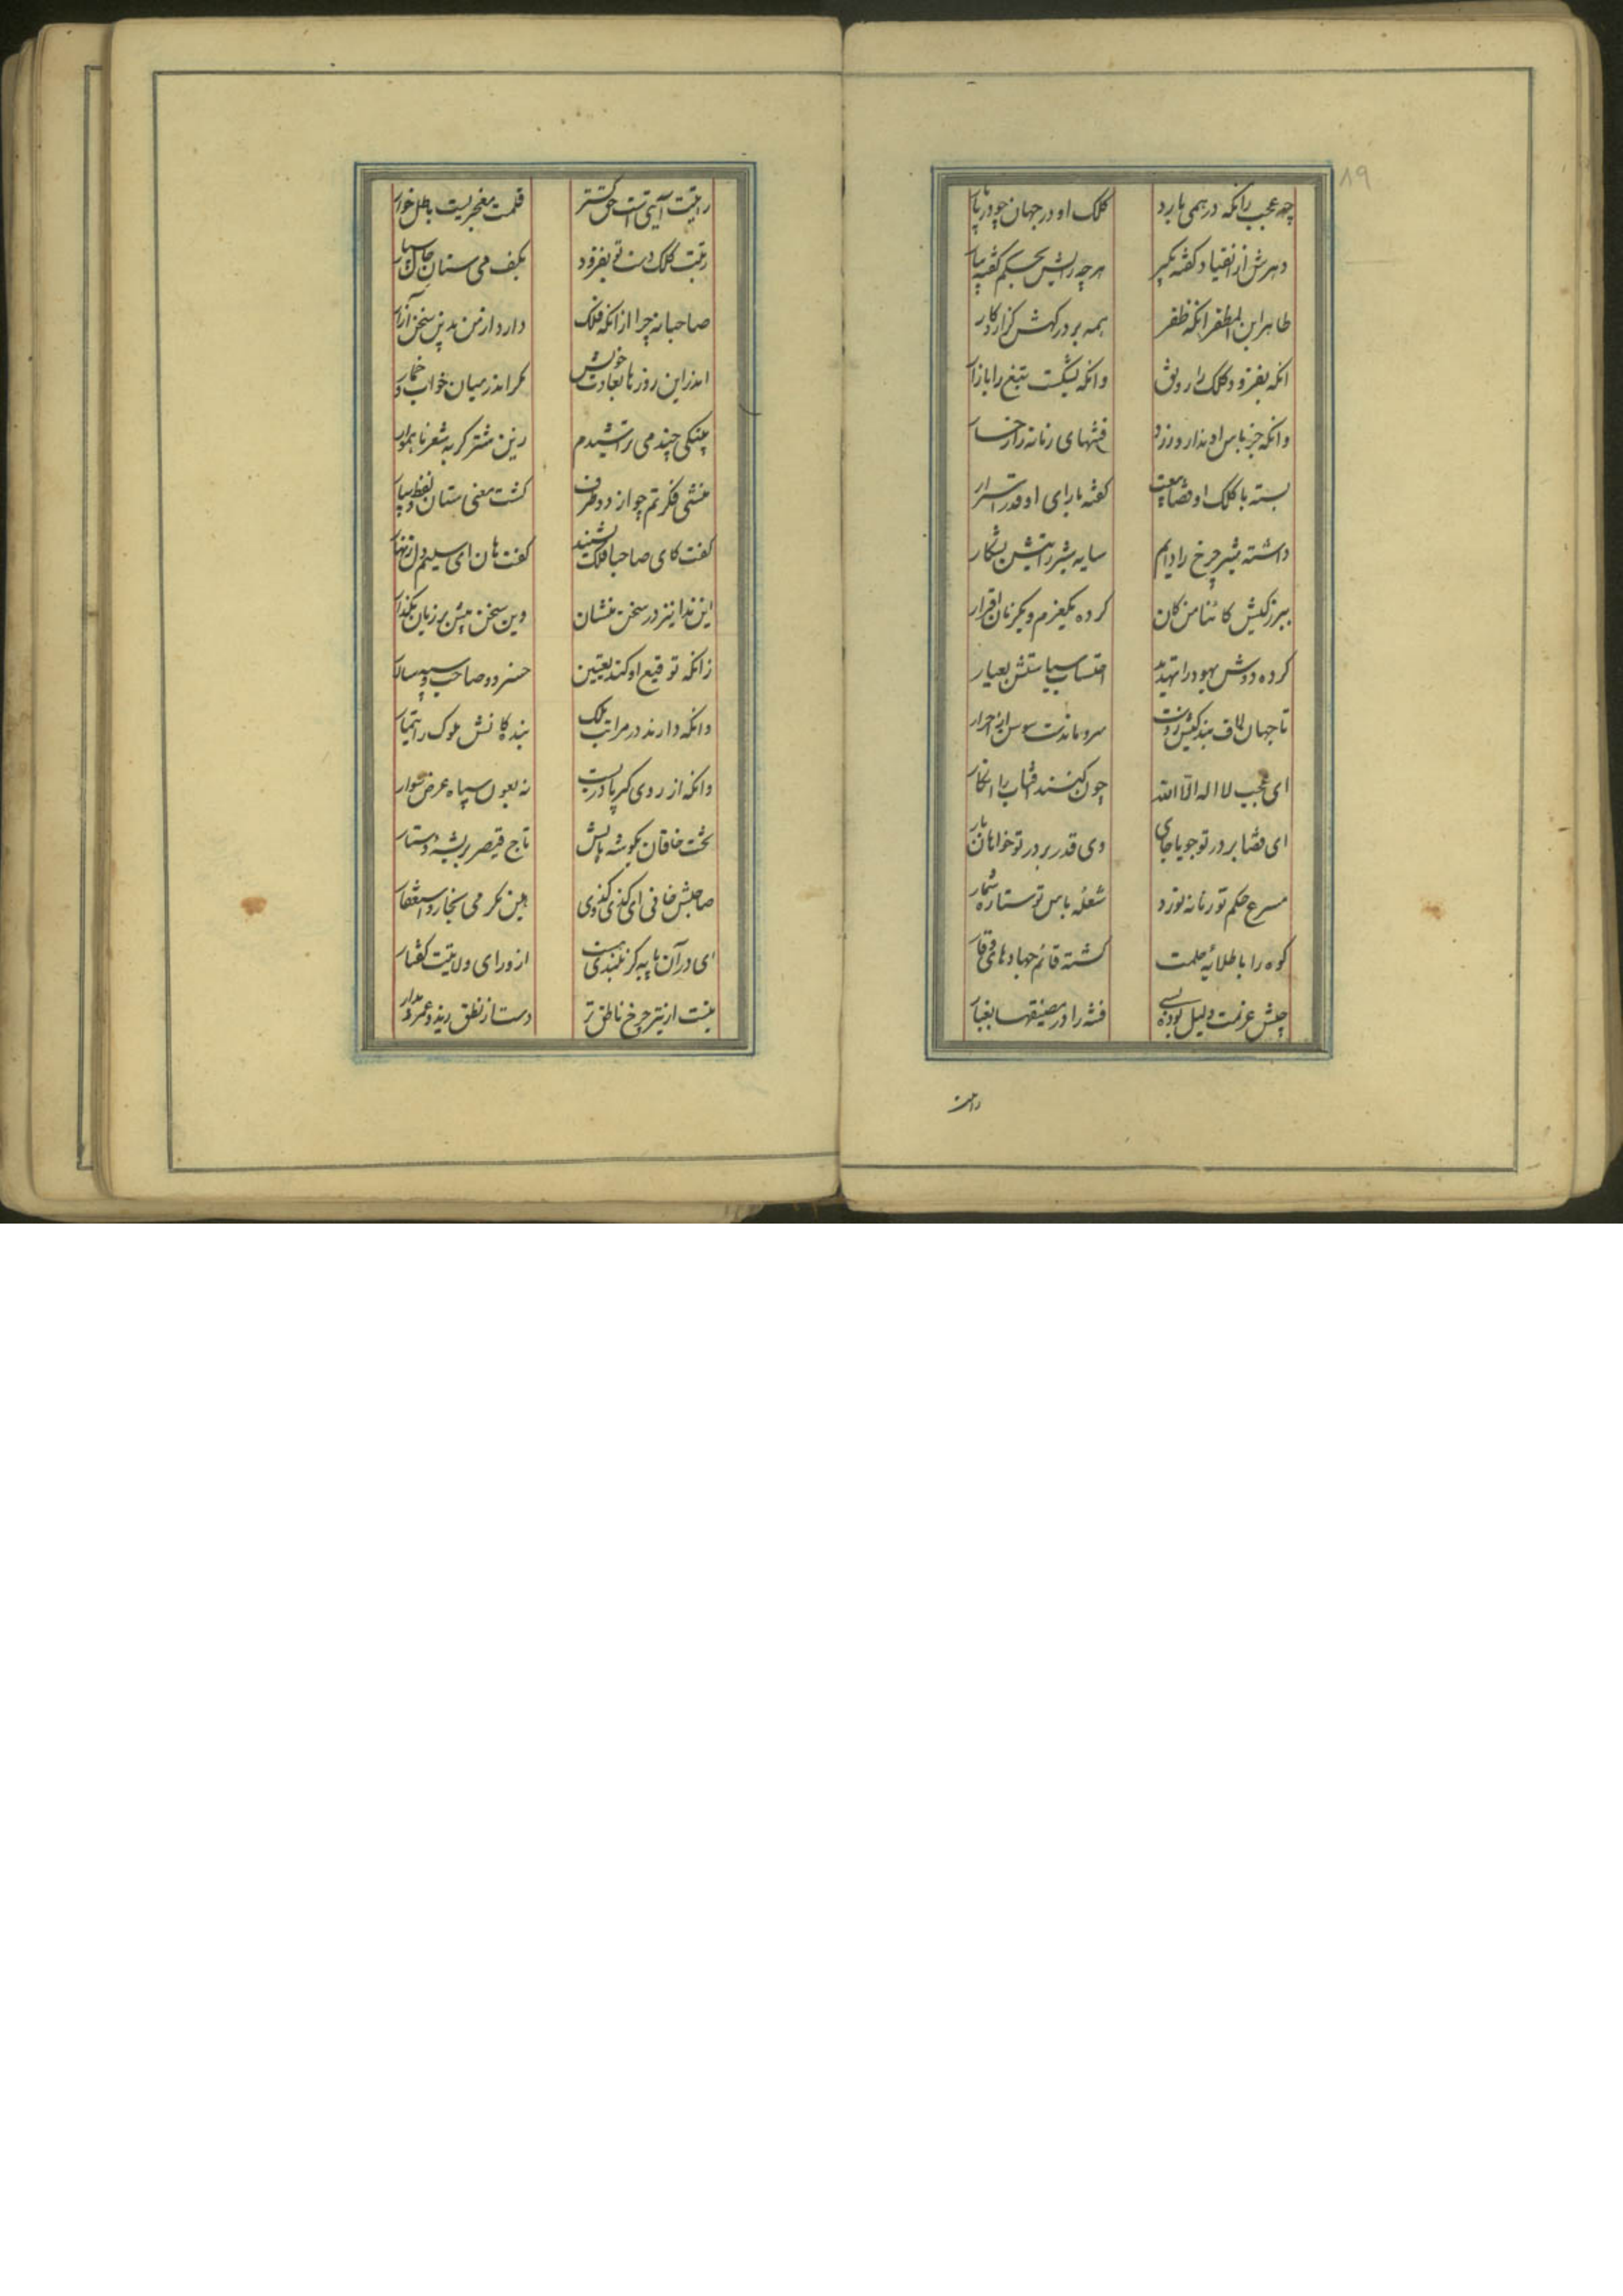 ۸۹
چه عجب زانکه در همی بارد کلک او در جهان چو دریا بار
دهرش از انقیاد گفته بگیر هرچه رایش بحکم گفته بیار
طاهر ابن المظفر انکه ظفر همه بر درگهش گزارد کار
انکه بفزود کلک را رونق وانکه بشکست تیغ را بازار
وانکه جز باس او ندارد زرد فتنهای زمانه را رخسار
بسته با کلک او قضا بیعت گفته با رای او قدر اسرار
داشته شیر چرخ را دایم سایه شیر رایتش بشکار
ببزرگیش کائنا من کان کرده یکعزم و یکزبان اقرار
کرده دوش یهود را تهدید احتساب سیاستش بعیار
تا جهان لاف بندگیش زدست سرو ماندست سوسن احرار
ای عجب لا اله الا الله چون کنند افتاب را انکار
ای قضا بر در تو جویا جای وی قدر بر در تو خواهان بار
مسرع حکم تو زمانه نورد شعله باس تو ستاره شمار
کوه را با طلائه حلمت گشته قائم جهاد های وقار
جیش عزمت دلیل بوده بسی فتنه را در مضیقها بغبار
رایت
رایتت آیتی است حق گستر قلمت معجزیست باطل خوار
رتبت کلک دست تو بفزود بکف می ستان جان اسپار
صاحبا نه چرا از انکه فلک دارد از من بدین سخن آزار
اندر این روزها بعادت خویش مگر اندر میان خواب و خمار
بیتکی چند می تراشیدم زین شتر گربه شعر ناهموار
منشی فکرتم چو از دو طرف گشت معنی ستان و لفظ سپار
گفت کای صاحبا فلک بشنید گفت هان ای سلیم دل زنهار
این ندا نیز در سخن منشان وین سخن بیش بر زبان مگذار
زانکه توقیع او کند بیقین خسرو و صاحب و سپهسالار
وانکه دارند در مراتب ملک بندگانش ملوک را تیمار
وانکه از روی کبریا دربست نه بعون سپاه عرض سوار
تخت خاقان بگوشه بالش تاج قیصر بریشه دستار
صاحبش خوانی ای کذی کذوی هین نگر می بخارد استغفار
ای در آن پایه کز بلندی هست از ورای ولایتت گفتار
بیتت از تیر چرخ ناطق تر دست از نطق زید و عمرو بدار